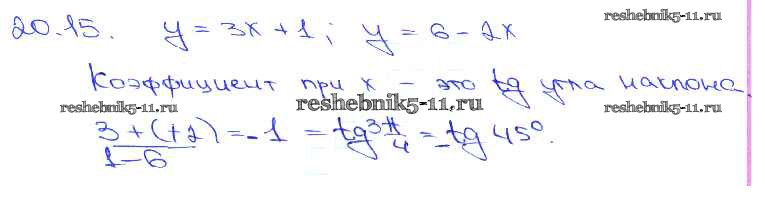 reshebnik5-11.ru
20.15. y = 3x + 1; y = 6 - 2x
Коэффициент при x - это tg угла наклона.
reshebnik5-11.ru reshebnik5-11.ru reshebnik5-11.ru
3 + (+2) / 1 - 6 = -1 = tg 3π/4 = -tg 45°.